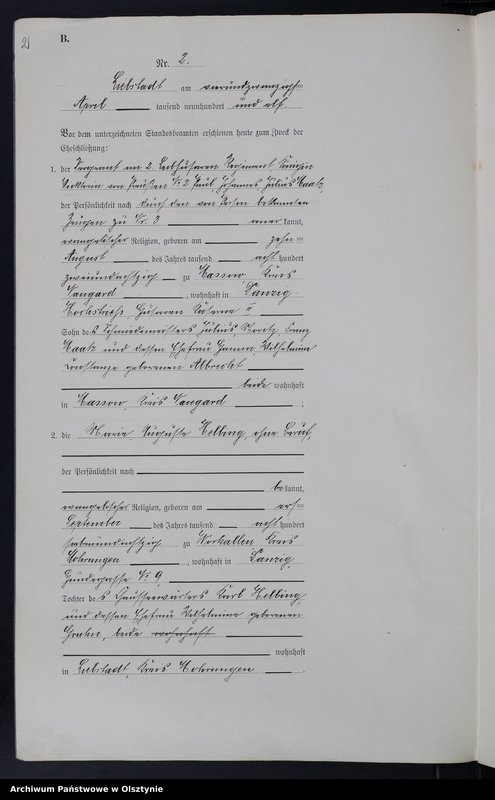 2
B.
Nr. 2.
Liebstadt am vierundzwanzigsten
April tausend neunhundert und elf.
Vor dem unterzeichneten Standesbeamten erschienen heute zum Zweck der
Eheschließung:
1. der Sergeant im 2. Leibhusaren Regiment Königin
Viktoria von Preußen No 2 Paul Johannes Julius Maatz
der Persönlichkeit nach durch den von Person bekannten
Zeugen zu Nr. 3 kannt,
evangelischer Religion, geboren am zehnten
August des Jahres tausend acht hundert
zweiundachtzig zu Massow Kreis
Naugard, wohnhaft in Danzig
Husaren Kaserne II
Sohn des Schmiedemeisters Julius, Moritz, Franz
Maatz und dessen Ehefrau Hanna, Wilhelmine
Constanze geborenen Albrecht
beide wohnhaft
in Massow, Kreis Naugard;
2. die Marie, Auguste Helbing, ohne Beruf,
der Persönlichkeit nach
bekannt,
evangelischer Religion, geboren am ersten
September des Jahres tausend acht hundert
siebenundachtzig zu Workallen Kreis
Mohrungen, wohnhaft in Danzig,
Hundegasse No 9,
Tochter des Karl Helbing,
und dessen Ehefrau Wilhelmine geborenen
beide wohnhaft
wohnhaft
in Liebstadt, Kreis Mohrungen.
Archiwum Państwowe w Olsztynie